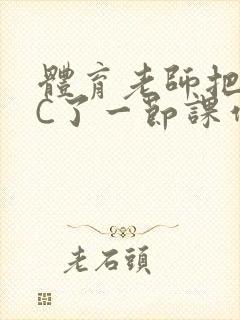 體育老師把
C了一節課
老石頭